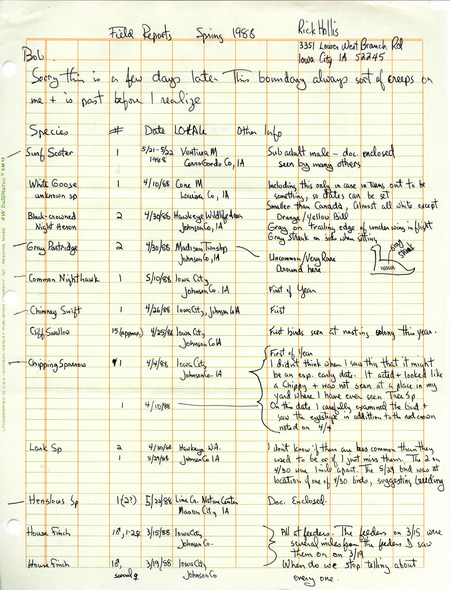 Field Reports Spring 1988
Rick Hollis
3351 Lower West Branch Rd
Iowa City IA 52245
Bob.
Sorry this is a few days later. This boundary always sort of creeps on
me + is past before I realize
Species # Date LOCALe Other Info
Surf Scoter 1 5/21-5/22 1988 Ventura M Cerro Gordo Co, IA Sub adult male - doc. enclosed
seen by many others
White Goose 1 4/10/88 Cone M Including this only in case in turns out to be
unknown sp Louisa Co, IA something, so dates can be set
Smaller than Canada, almost all white except
Orange/Yellow Bill
Black-crowned 2 4/30/88 Hawkeye Wildlife Area Gray on trailing edge of under wing in flight
Night Heron Johnson Co, IA Gray Streak on side when sitting
Gray Streak
Gray Partridge 2 4/30/88 Madison Township Uncommon/Very Rare
Johnson Co, IA Around here
Common Nighthawk 1 5/10/88 Iowa City First of Year
Johnson Co. IA
Chimney Swift 1 4/26/88 Iowa City, Johnson Co IA First
Cliff Swallow 15 (approx.) 4/25/88 Iowa City First birds seen at nesting colony this year.
Johnson Co IA
Chipping Sparrow 1 4/4/88 Iowa City First of Year
Johnson Co. IA I didn't think when I saw this that it might
be an esp. early date. It acted + looked like
a Chippy + was not seen at a place in my
yard where I have ever seen Tree Sp
1 4/10/88 On this date I carefully examined the bird +
saw the eyestripe in addition to the red crown
noted on 4/4
Lark Sp 2 4/30/88 Hawkeye WA. I don't know if these are less common than they
1 5/29/88 Johnson Co IA used to be or if I just miss them. The 2 on
4/30 were 1 mile apart. The 5/29 bird was at
location of one of 4/30 birds, suggesting breeding
Henslows Sp 1 (2?) 5/22/88 Lime Cr. Nature Center Doc. Enclosed.
Mason City IA
House Finch 1♂, 1-2♀ 3/15/88 Iowa City All at feeders. The feeders on 3/15 were
Johnson Co. several miles from the feeders I saw
them on on 3/19
House Finch 1♂, 3/19/88 Iowa City When do we stop telling about
several ♀ Johnson Co every one.